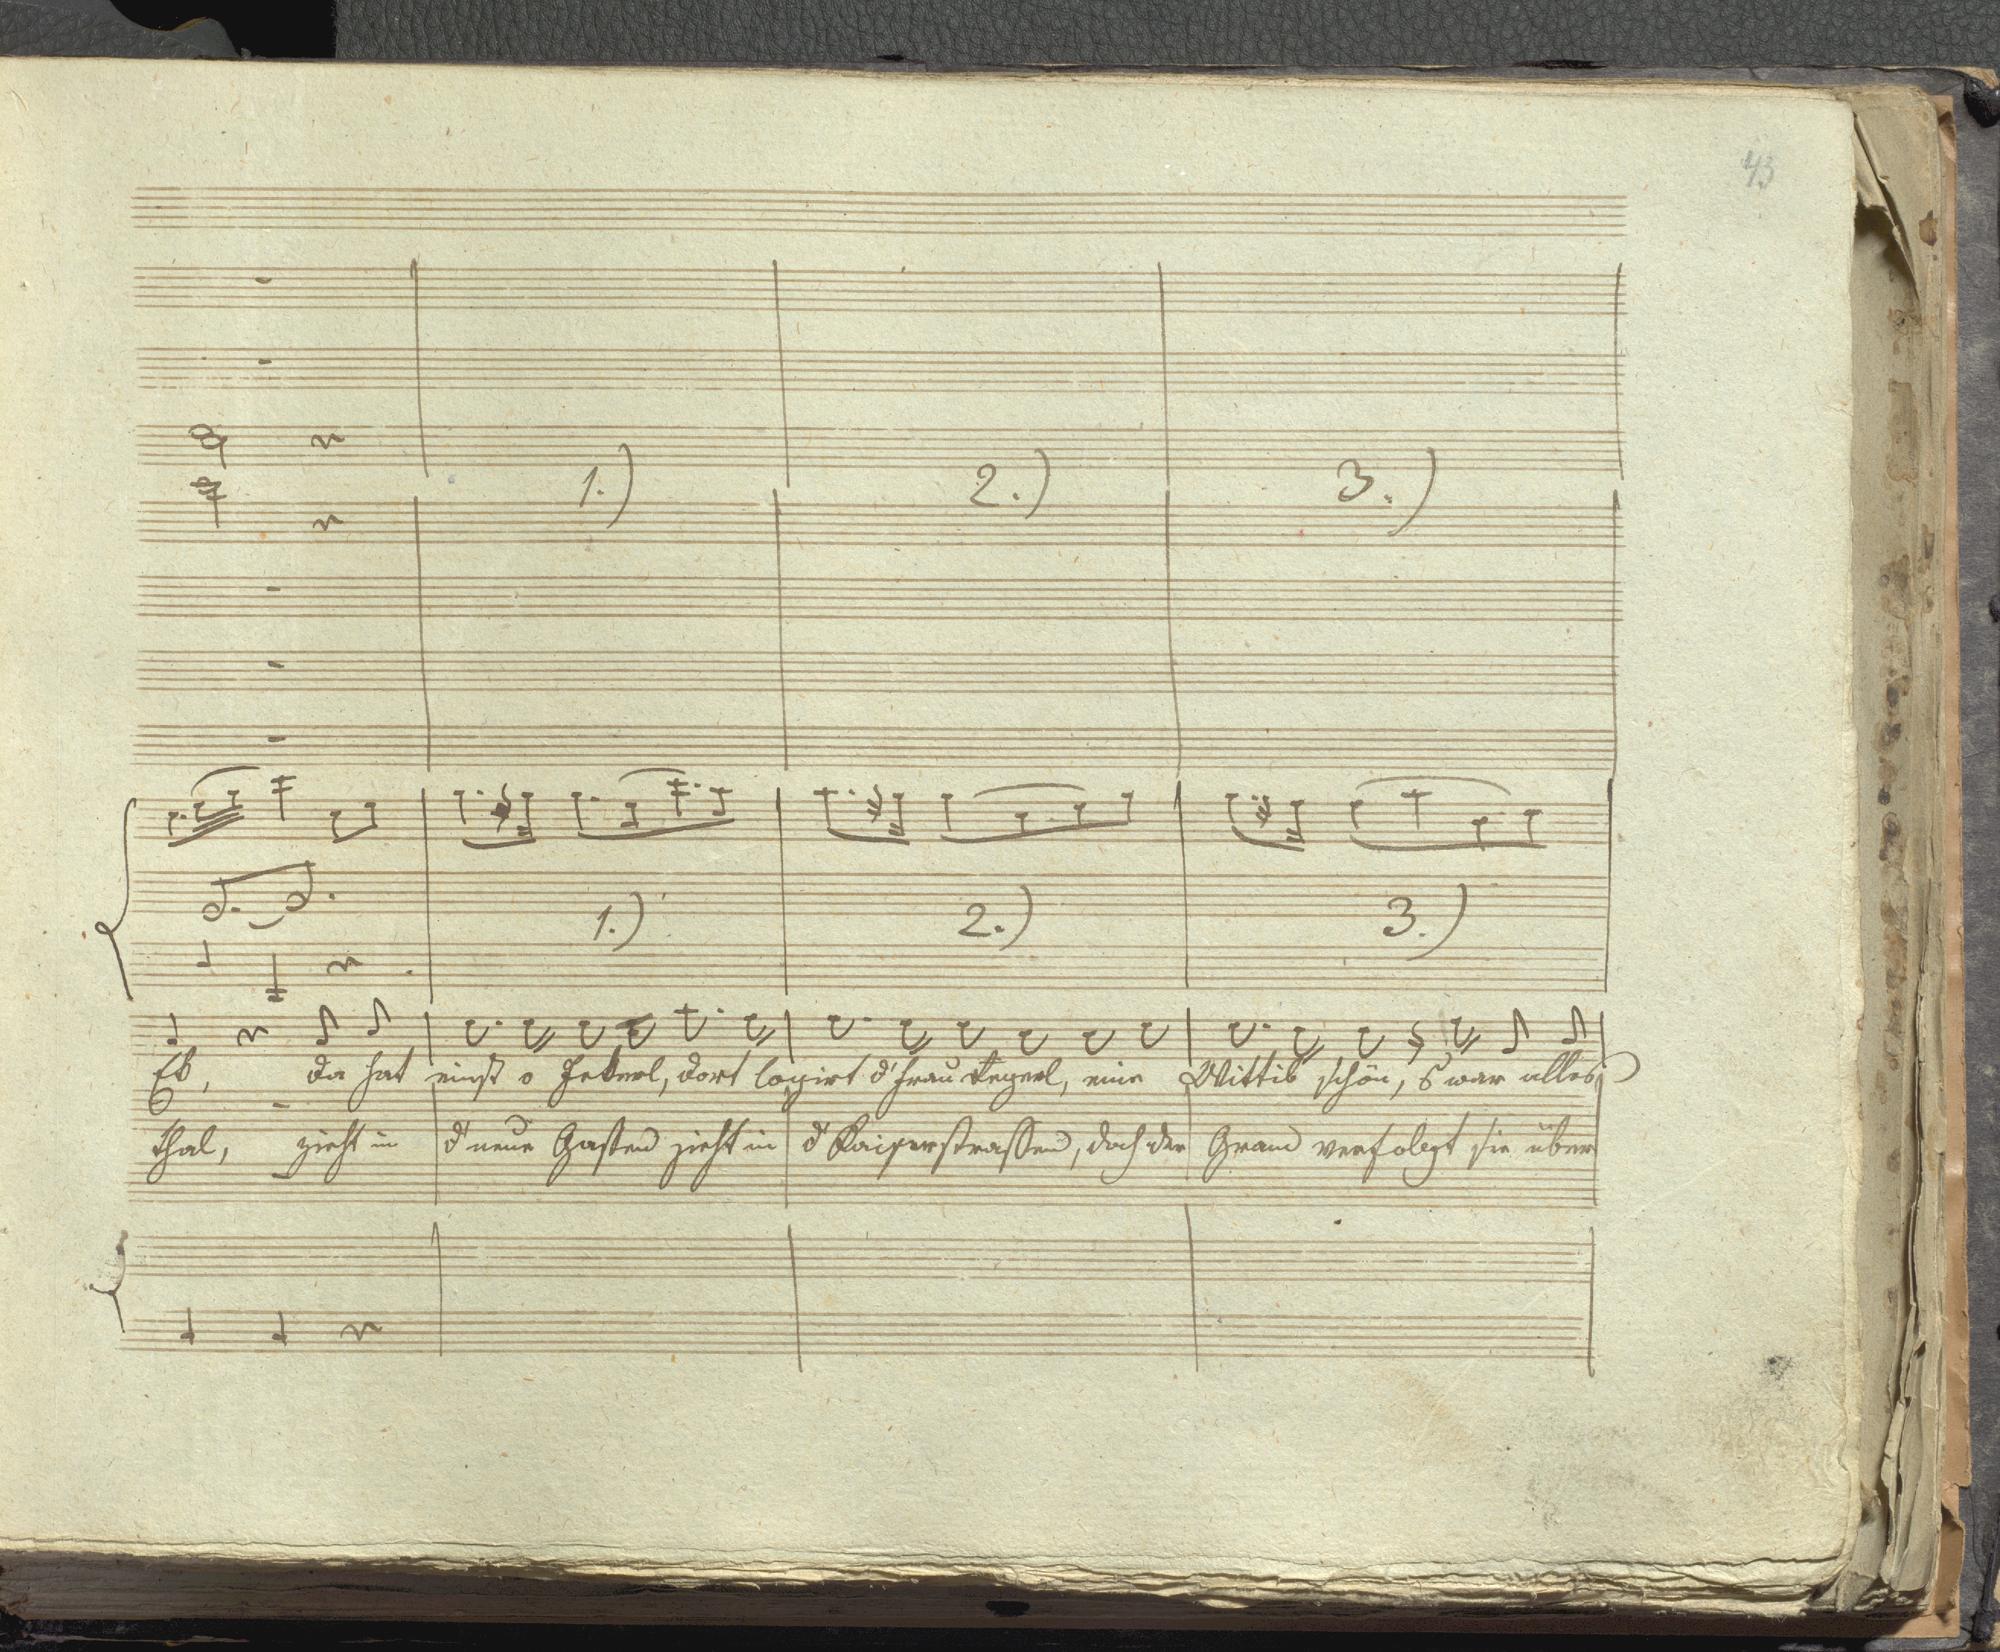 43
1.) 2.) 3.)
1.) 2.) 3.)
Eck, da hat einst o Jekerl, dort logirt d' Frau Regerl, eine Wittib schön, s' war alles
thal, zieht in d' neue Gassen zieht in d' Kaiserstrassen, doch der Gram verfolgt sie über